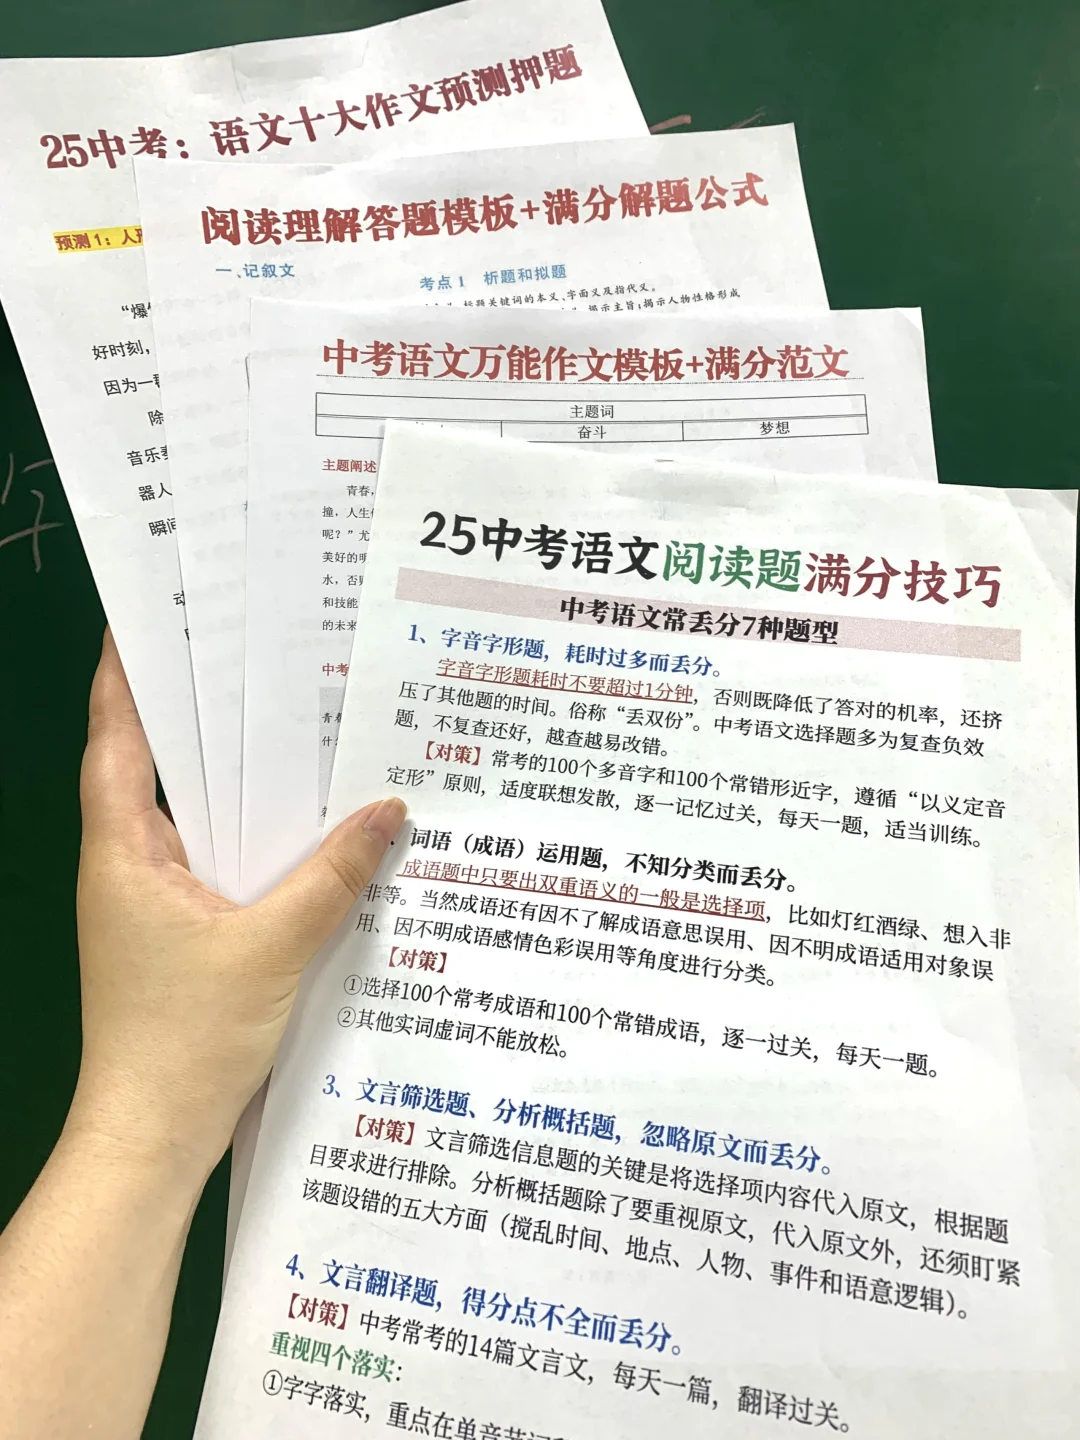 25中考：语文十大作文预测押题
预测1：人
“爆
好时刻，
因为一
除
音乐
器人
瞬间
阅读理解答题模板+满分解题公式
一、记叙文
考点1 析题和拟题
标题关键词的本义、字面义及指代义。
揭示主旨；揭示人物性格形成
中考语文万能作文模板+满分范文
主题词
奋斗 梦想
主题阐述
青春，
撞，人生
呢？”尤
美好的明
水，否则
和技能
的未来
中考
青春
什么
25中考语文阅读题满分技巧
中考语文常丢分7种题型
1、字音字形题，耗时过多而丢分。
字音字形题耗时不要超过1分钟，否则既降低了答对的机率，还挤
压了其他题的时间。俗称“丢双份”。中考语文选择题多为复查负效
题，不复查还好，越查越易改错。
【对策】常考的100个多音字和100个常错形近字，遵循“以义定音
定形”原则，适度联想发散，逐一记忆过关，每天一题，适当训练。
词语（成语）运用题，不知分类而丢分。
成语题中只要出双重语义的一般是选择项，比如灯红酒绿、想入非
非等。当然成语还有因不了解成语意思误用、因不明成语适用对象误
用、因不明成语感情色彩误用等角度进行分类。
【对策】
①选择100个常考成语和100个常错成语，逐一过关，每天一题。
②其他实词虚词不能放松。
3、文言筛选题、分析概括题，忽略原文而丢分。
【对策】文言筛选信息题的关键是将选择项内容代入原文，根据题
目要求进行排除。分析概括题除了要重视原文，代入原文外，还须盯紧
该题设错的五大方面（搅乱时间、地点、人物、事件和语意逻辑）。
4、文言翻译题，得分点不全而丢分。
【对策】中考常考的14篇文言文，每天一篇，翻译过关。
重视四个落实：
①字字落实，重点在单音节词